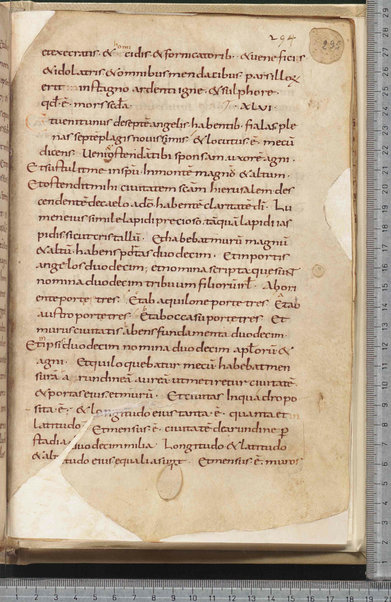 294
295
etexecratis · & homicidis & fornicatorib · & uene ficiis
& idolatris & omnibus mendatibus pars illoꝝ
erit in stagno ardenti igne & sulphore ·
qđ · ē · mors scđa · XLVI ·
et uenit unus de septē angelis habentib · fialas ple
nas septē plagis nouissimis & locutus ē · mecū
dicens · Ueni ostendā tibi sponsam uxorē agni ·
Et sustulit me in spū In montē magnō & altum ·
Et ostendit mihi ciuitatem scām hierusalem des
cendentē de caelo · a dō habentē claritatē dī · Lu
men eius simile lapidi precioso · tāquā lapidi ias
pidis sicut cristallū · Et habebat murū magnū
& altū · habens portas duodecim · Et in portis
angelos duodecim · et nomina scripta que sunt
nomina duodecim tribuum filiorum isrl · Ab ori
ente porte tres · Et ab aquilone porte tres · Et ab
austro porte tres · Et ab occasu porte tres · Et
murus ciuitatis abens fundamenta duodecim ·
Et in ipsis duodecim nomina duodecim aplorū &
agni · Et qui loquebatur mecū habebat men
surā arundineā aureā ut metiretur ciuitatē
& portas eius et murū · Et ciuitas In quadro po
sita · ē · & longitudo eius tanta · ē · quanta et in
latitudo · Et mensus · ē · ciuitatē de arundine p
stadia duodecim milia · Longitudo & latitudo
& altitudo eius equalia sunt · Et mensus · ē · muros